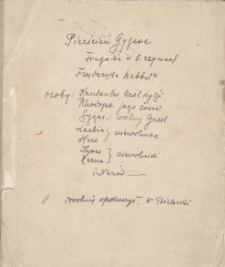 Pierścień Gygesa
Tragedia w 5 czynach
Fryderyka Hebbla
osoby: Kandaules Król Lydji
Rhodope jego żona
Gyges, wolny Grek
Lesbia } niewolnice
Hero
Thoas } niewolnicy
Karna
i Naród
spolszczył W